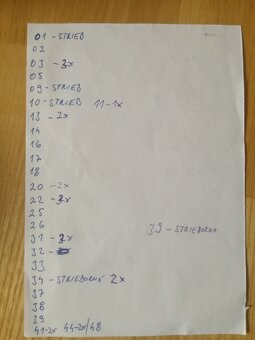 01 - STRIEB
02
03 - 3x
05
09 - STRIEB
10 - STRIEB 11-1x
13 - 2x
14
16
17
18
20 - 2x
22 - 3x
25
26
31 - 2x 39 - STRIEBORNA
32 -
33
34 - STRIEBORNÁ 2x
37
38
39
41-2x 44-2x/48